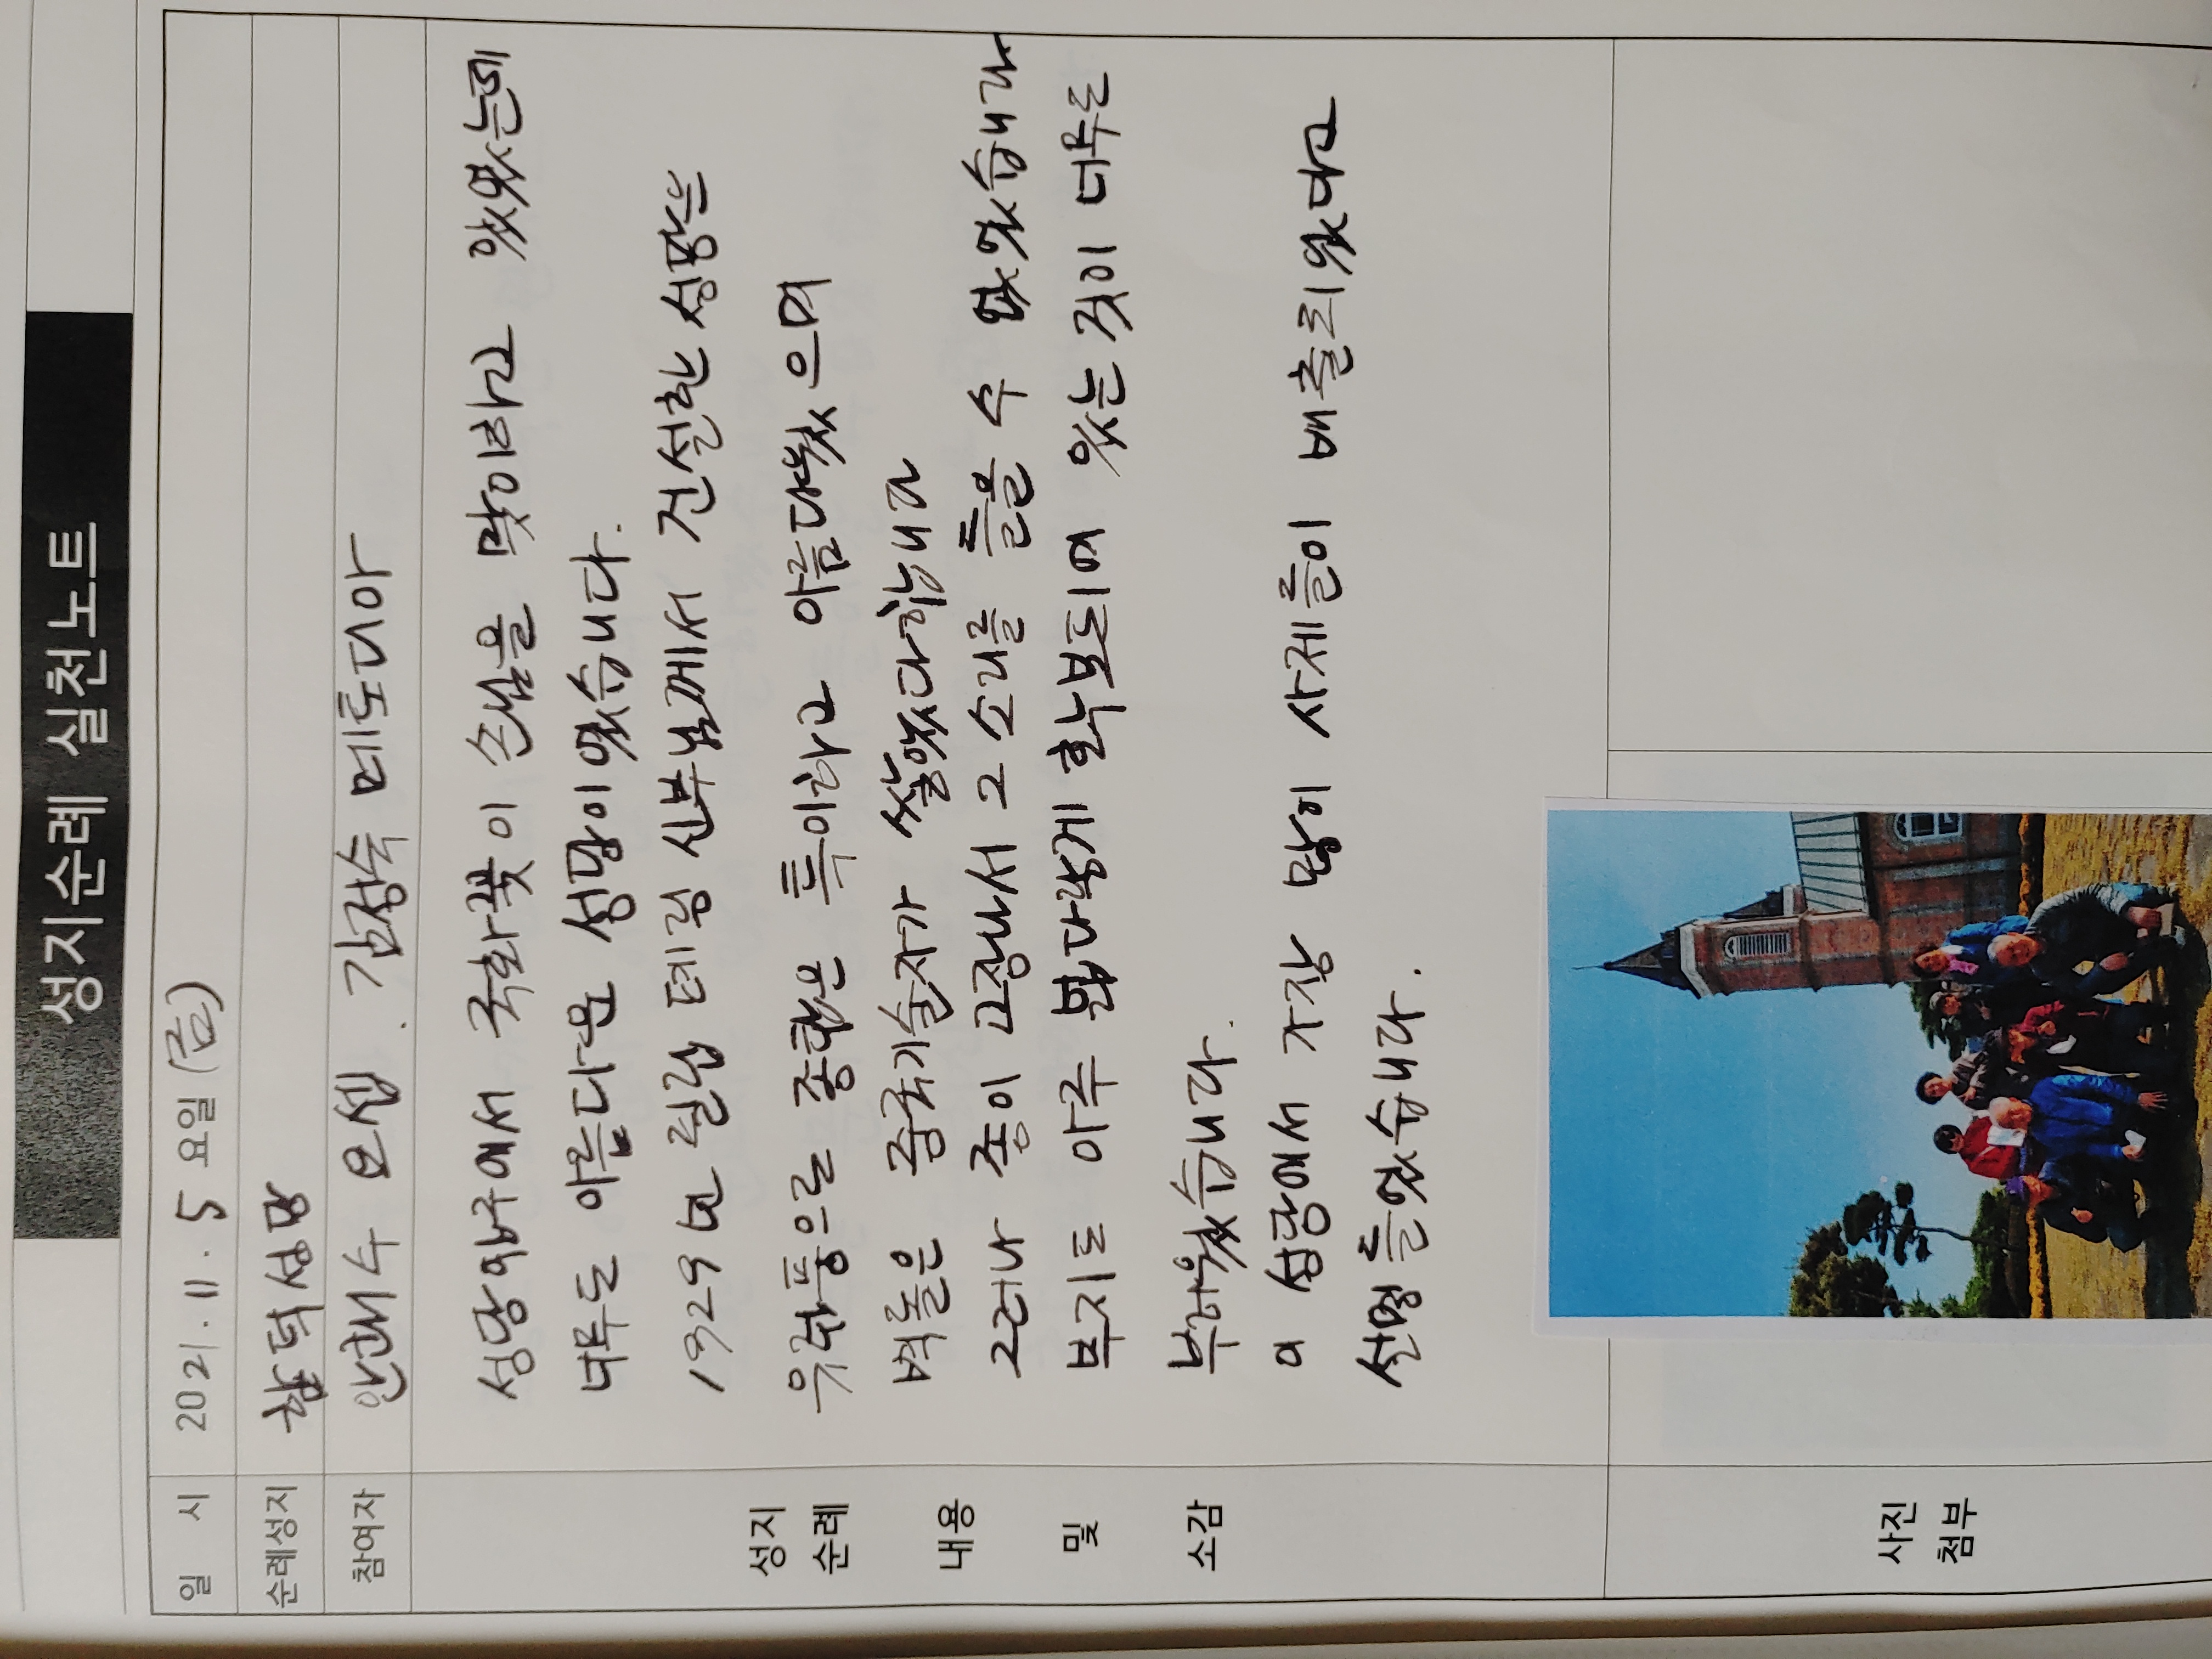 성지순례 실천노트
일 시 2021. 11. 5 요일 (금)
순례성지 합덕성당
참여자 요셉. 김정숙 메토디아
성당입구에서 국화꽃이 손님을 맞이하고 있었는데
너무도 아름다운 성당이였습니다.
1929년 필립 페링 신부님께서 건설한 성당은
유럽풍으로 종탑은 특이하고 아름다웠으며
벽돌은 중국기술자가 쌓았다합니다
그러나 종이 고장나서 그 소리를 들을 수 없었습니다
부지도 아주 넓다랗게 확보되어 있는 것이 너무도
부러웠습니다.
이 성당에서 가장 많이 사제들이 배출되었다고
설명 들었습니다.
성지
순례
내용
및
소감
사진
첨부